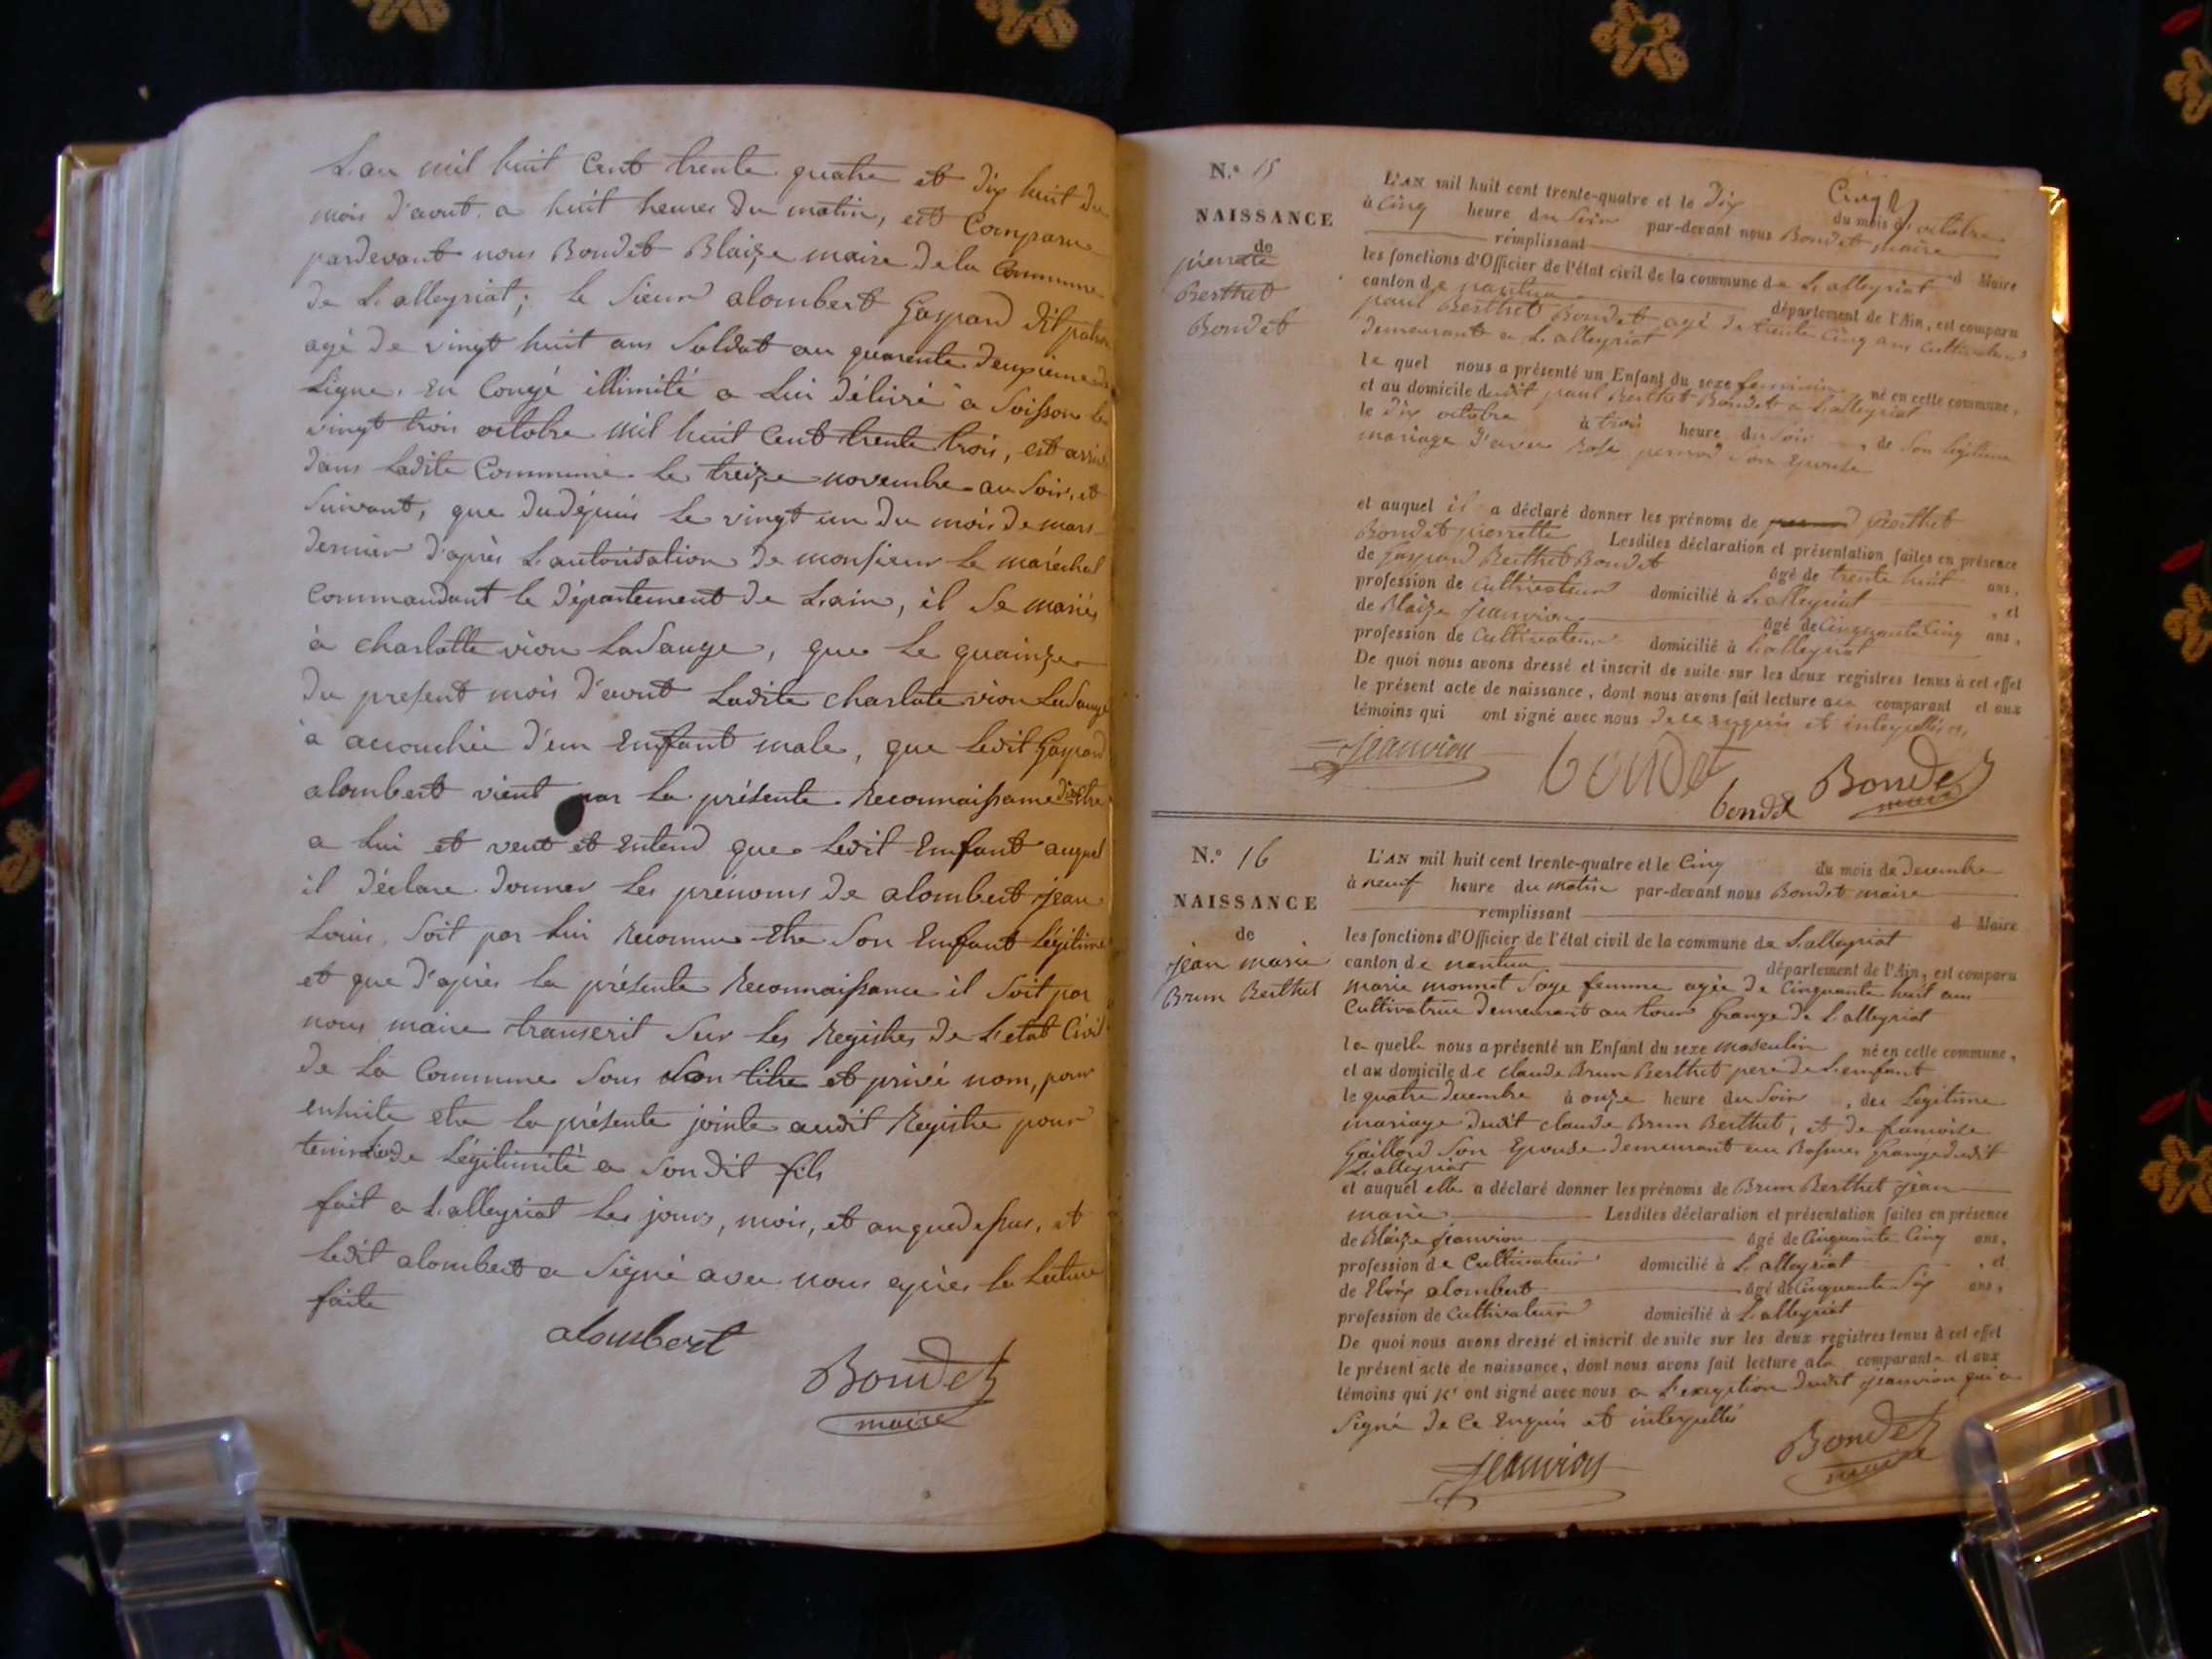 L'an mil huit Cent trente quatre et dix huit du
mois d'aout. a huit heures du matin, est Comparu
pardevant nous Bondet Blaize maire de la Commune
de L'alleyriat; le Sieur alombert Gaspard dit
agé de vingt huit ans Soldat au quarente deuxieme de
Ligne. en Congé illimité a Lui délivré à Soissons le
vingt trois octobre mil huit Cent trente trois, est arrivé
dans Ladite Commune le treize novembre au Soir, et
Suivant, que dudépuis le vingt un du mois de mars
dernier d'après L'autorisation de monsieur le maréchal
Commandant le département de L'ain, il Se mariés
à charlotte vion Lasauge, que le quainze
du present mois d'aout Ladite charlote vion Lasauge
à accouchée d'un Enfant male, que ledit Gaspard
alombert vient par la présente Reconnaissance dire être
a Lui et veut et Entend que ledit Enfant auquel
il déclare donner les prénoms de alombert jean
Louis, Soit par Lui Reconnu etre Son Enfant Légitime
et que d'après la présente Reconnaissance il Soit par
nous maire transcrit Sur les Registres de L'etat Civil
de la Commune Sous Son titre et privé nom, pour
ensuite etre la présente jointe audit Registre pour
tenir lieu de Légitimité a Sondit fils
fait a L'alleyriat les jours, mois, et an quedessus, et
ledit alombert a Signé avec nous après la lecture
faite
alombert
Bondet
maire
N.° 15
NAISSANCE
de
pierrete
Berthet
Bondet
L'AN mil huit cent trente-quatre et le dix du mois d'octobre
à Cinq heure du Soir par-devant nous Bondet maire
remplissant d Maire
les fonctions d'Officier de l'état civil de la commune de L'alleyriat
canton de nantua département de l'Ain, est comparu
paul Berthet Bondet agé de trente Cinq ans Cultivateur
demeurant a L'alleyriat
le quel nous a présenté un Enfant du sexe feminin né en cette commune,
et au domicile dudit paul Berthet Bondet a L'alleyriat
le dix octobre à trois heure du Soir, de Son légitime
mariage d'avec Rose pernod Son Epouse
et auquel il a déclaré donner les prénoms de Berthet
Bondet pierrette Lesdites déclaration et présentation faites en présence
de Gaspard Berthet Bondet âgé de trente huit ans,
profession de Cultivateur domicilié à L'alleyriat, et
de Blaize jeanvion âgé de Cinquante Cinq ans,
profession de Cultivateur domicilié à L'alleyriat
De quoi nous avons dressé et inscrit de suite sur les deux registres tenus à cet effet
le présent acte de naissance, dont nous avons fait lecture au comparant et aux
témoins qui ont signé avec nous de ce enquis et interpellés,
jeanvion
bondet
bondet
Bondet
maire
N.° 16
NAISSANCE
de
jean marie
Brun Berthet
L'AN mil huit cent trente-quatre et le Cinq du mois de decembre
à neuf heure du matin par-devant nous Bondet maire
remplissant d Maire
les fonctions d'Officier de l'état civil de la commune de L'alleyriat
canton de nantua département de l'Ain, est comparu
marie monnet Sage femme agée de Cinquante huit ans
Cultivatrice demeurant au tour grange de L'alleyriat
la quelle nous a présenté un Enfant du sexe masculin né en cette commune,
et au domicile de claude Brun Berthet pere de L'enfant
le quatre decembre à onze heure du Soir, du Légitime
mariage dudit claude Brun Berthet, et de francoise
Gaillard Son Epouse demeurant aux grange dudit
L'alleyriat
et auquel elle a déclaré donner les prénoms de Brun Berthet jean
marie Lesdites déclaration et présentation faites en présence
de Blaize jeanvion âgé de Cinquante Cinq ans,
profession de Cultivateur domicilié à L'alleyriat, et
de Eloix alombert âgé de Cinquante Six ans,
profession de Cultivateur domicilié à L'alleyriat
De quoi nous avons dressé et inscrit de suite sur les deux registres tenus à cet effet
le présent acte de naissance, dont nous avons fait lecture a la comparante et aux
témoins qui n' ont signé avec nous a L'exception dudit jeanvion qui a
Signé de Ce Enquis et interpellés
jeanvion
Bondet
maire